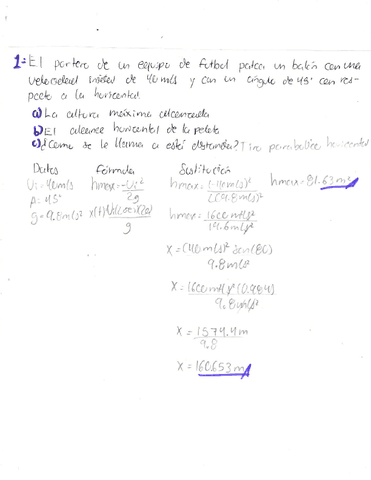 1= El portero de un equipo de futbol patea un balón con una
velocidad inicial de 40m/s y con un ángulo de 45° con res-
pecto a la horizontal.
a) La altura máxima alcanzada
b) El alcance horizontal de la pelota
c) ¿Como se le llama a está distancia? Tiro parabólico horizontal
Datos Fórmula Sustitución
Vi=40m/s hmax=-Vi²/2g hmax=(-40m/s)²/2(9.8m/s) hmax=81.63m
g=9.8m/s² hmax=1600m²/s²/19.6m/s²
X=(40m/s)² Sen(80)/9.8m/s²
X=1600m²/s²(0.984)/9.8m/s²
X=1574.4m/9.8
X=160.653m